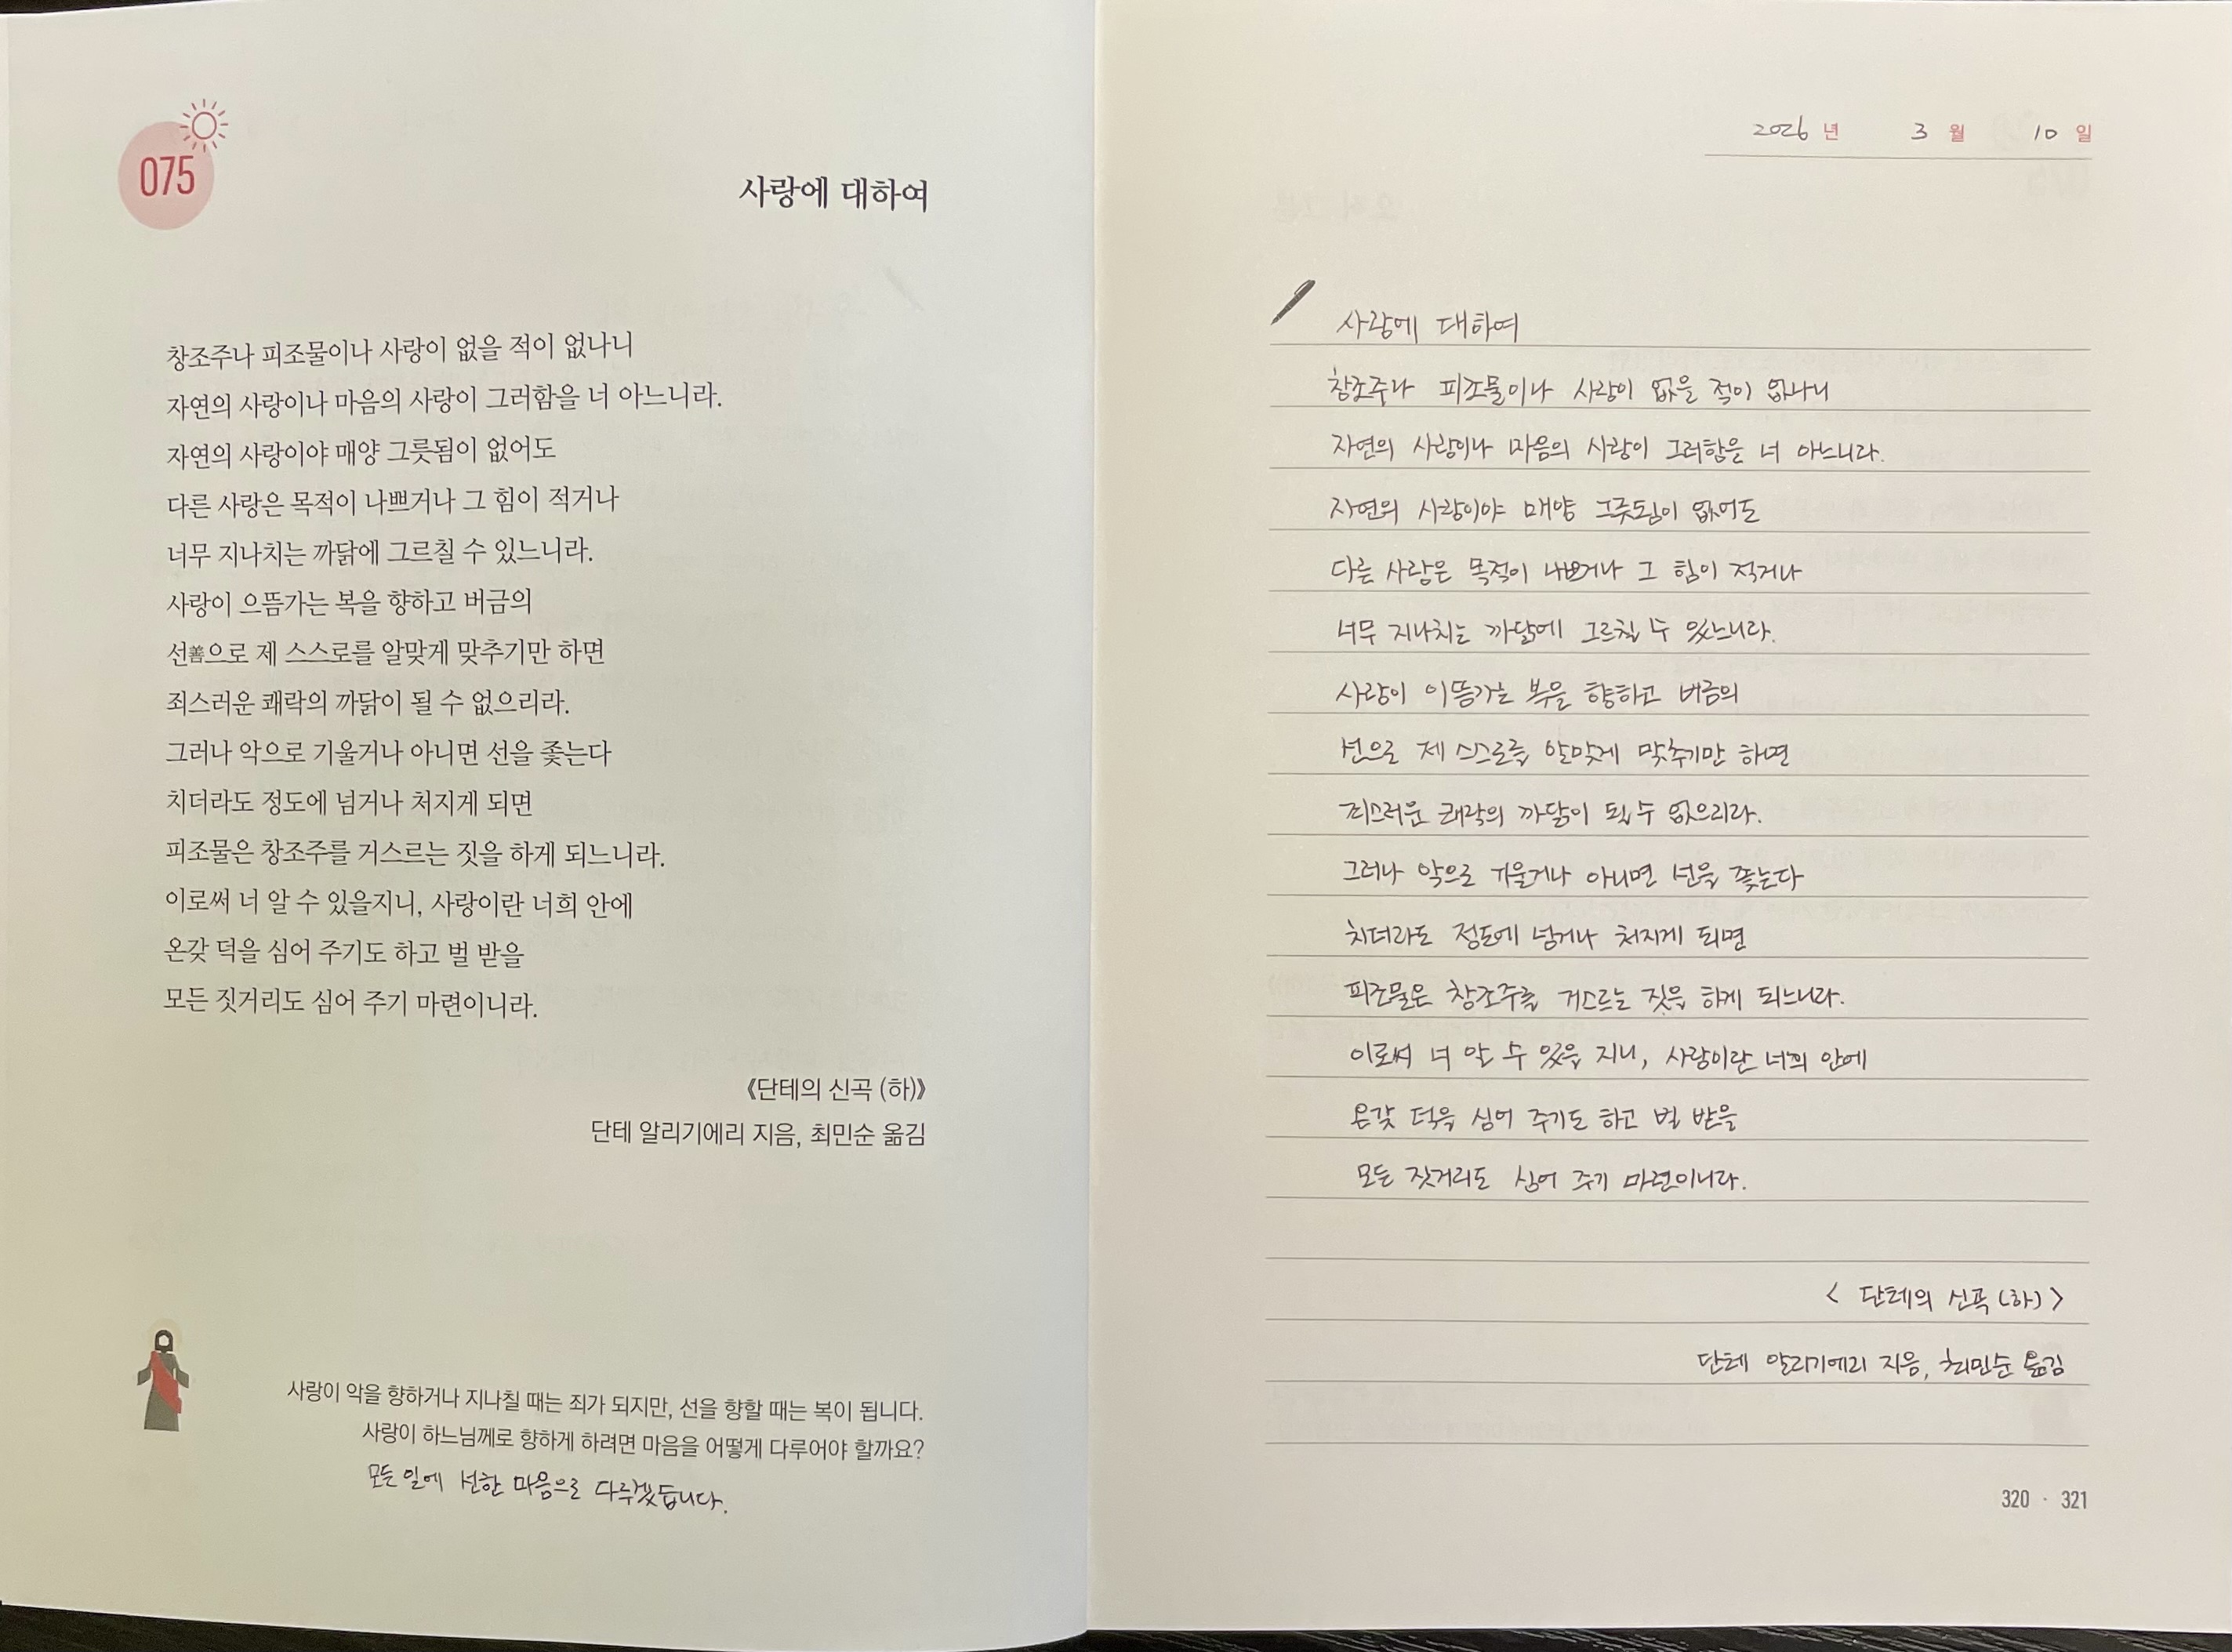 075
사랑에 대하여
창조주나 피조물이나 사랑이 없을 적이 없나니
자연의 사랑이나 마음의 사랑이 그러함을 너 아느니라.
자연의 사랑이야 매양 그릇됨이 없어도
다른 사랑은 목적이 나쁘거나 그 힘이 적거나
너무 지나치는 까닭에 그르칠 수 있느니라.
사랑이 으뜸가는 복을 향하고 버금의
선善으로 제 스스로를 알맞게 맞추기만 하면
죄스러운 쾌락의 까닭이 될 수 없으리라.
그러나 악으로 기울거나 아니면 선을 좇는다
치더라도 정도에 넘거나 처지게 되면
피조물은 창조주를 거스르는 짓을 하게 되느니라.
이로써 너 알 수 있을지니, 사랑이란 너희 안에
온갖 덕을 심어 주기도 하고 벌 받을
모든 짓거리도 심어 주기 마련이니라.
《단테의 신곡 (하)》
단테 알리기에리 지음, 최민순 옮김
사랑이 악을 향하거나 지나칠 때는 죄가 되지만, 선을 향할 때는 복이 됩니다.
사랑이 하느님께로 향하게 하려면 마음을 어떻게 다루어야 할까요?
모든 일에 선한 마음으로 다루겠습니다.
2026 년 3 월 10 일
사랑에 대하여
창조주나 피조물이나 사랑이 없을 적이 없나니
자연의 사랑이나 마음의 사랑이 그러함을 너 아느니라.
자연의 사랑이야 매양 그릇됨이 없어도
다른 사랑은 목적이 나쁘거나 그 힘이 적거나
너무 지나치는 까닭에 그르칠 수 있느니라.
사랑이 이뜸가는 복을 향하고 버금의
선으로 제 스스로를 알맞게 맞추기만 하면
죄스러운 쾌락의 까닭이 될 수 없으리라.
그러나 악으로 기울거나 아니면 선을 쫓는다
치더라도 정도에 넘거나 처지게 되면
피조물은 창조주를 거스르는 짓을 하게 되느니라.
이로써 너 알 수 있을 지니, 사랑이란 너희 안에
온갖 덕을 심어 주기도 하고 벌 받을
모든 짓거리도 심어 주기 마련이니라.
< 단테의 신곡 (하) >
단테 알리기에리 지음, 최민순 옮김
320 · 321